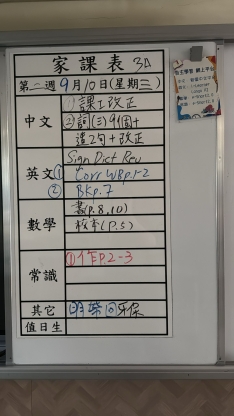 家課表 3A
第二週9月10日(星期三)
中文
①課工改正
②詞(三)9個+
造2句+改正
英文
Sign Dict Rev
① Corr WBp.1-2
② BKp.7
數學
書(p.8,10)
校本(p.5)
常識
①作P.2-3
其它
明帶回牙保
值日生